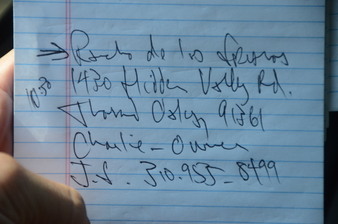 → Rancho de los
10:30 1430 Hidden Valley Rd.
Thousand Oaks, 91361
Charlie - Owner
J.S. 310.955-8499